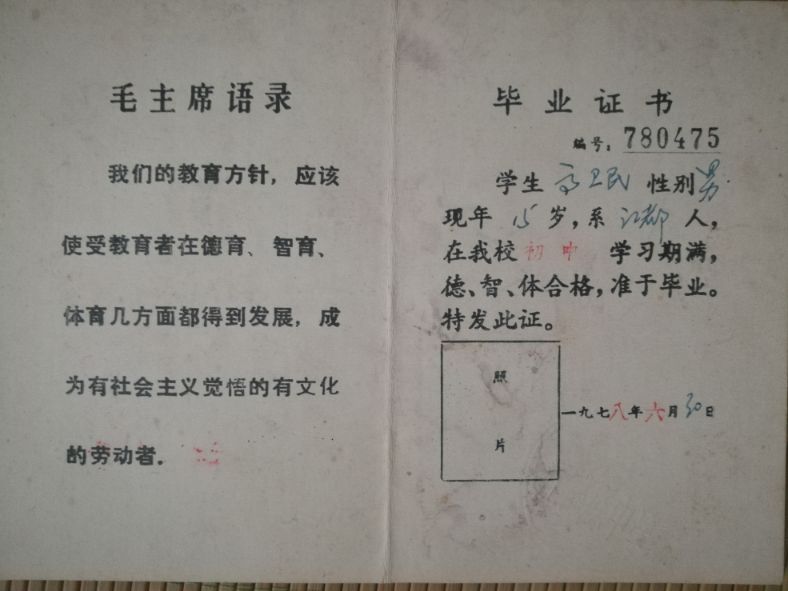 毛主席语录
我们的教育方针，应该
使受教育者在德育、智育、
体育几方面都得到发展，成
为有社会主义觉悟的有文化
的劳动者．
毕业证书
编号：780475
学生 高卫民 性别 男
现年 15 岁，系 江都 人，
在我校 初中 学习期满，
德、智、体合格，准于毕业。
特发此证。
照
片
一九七八年六月30日